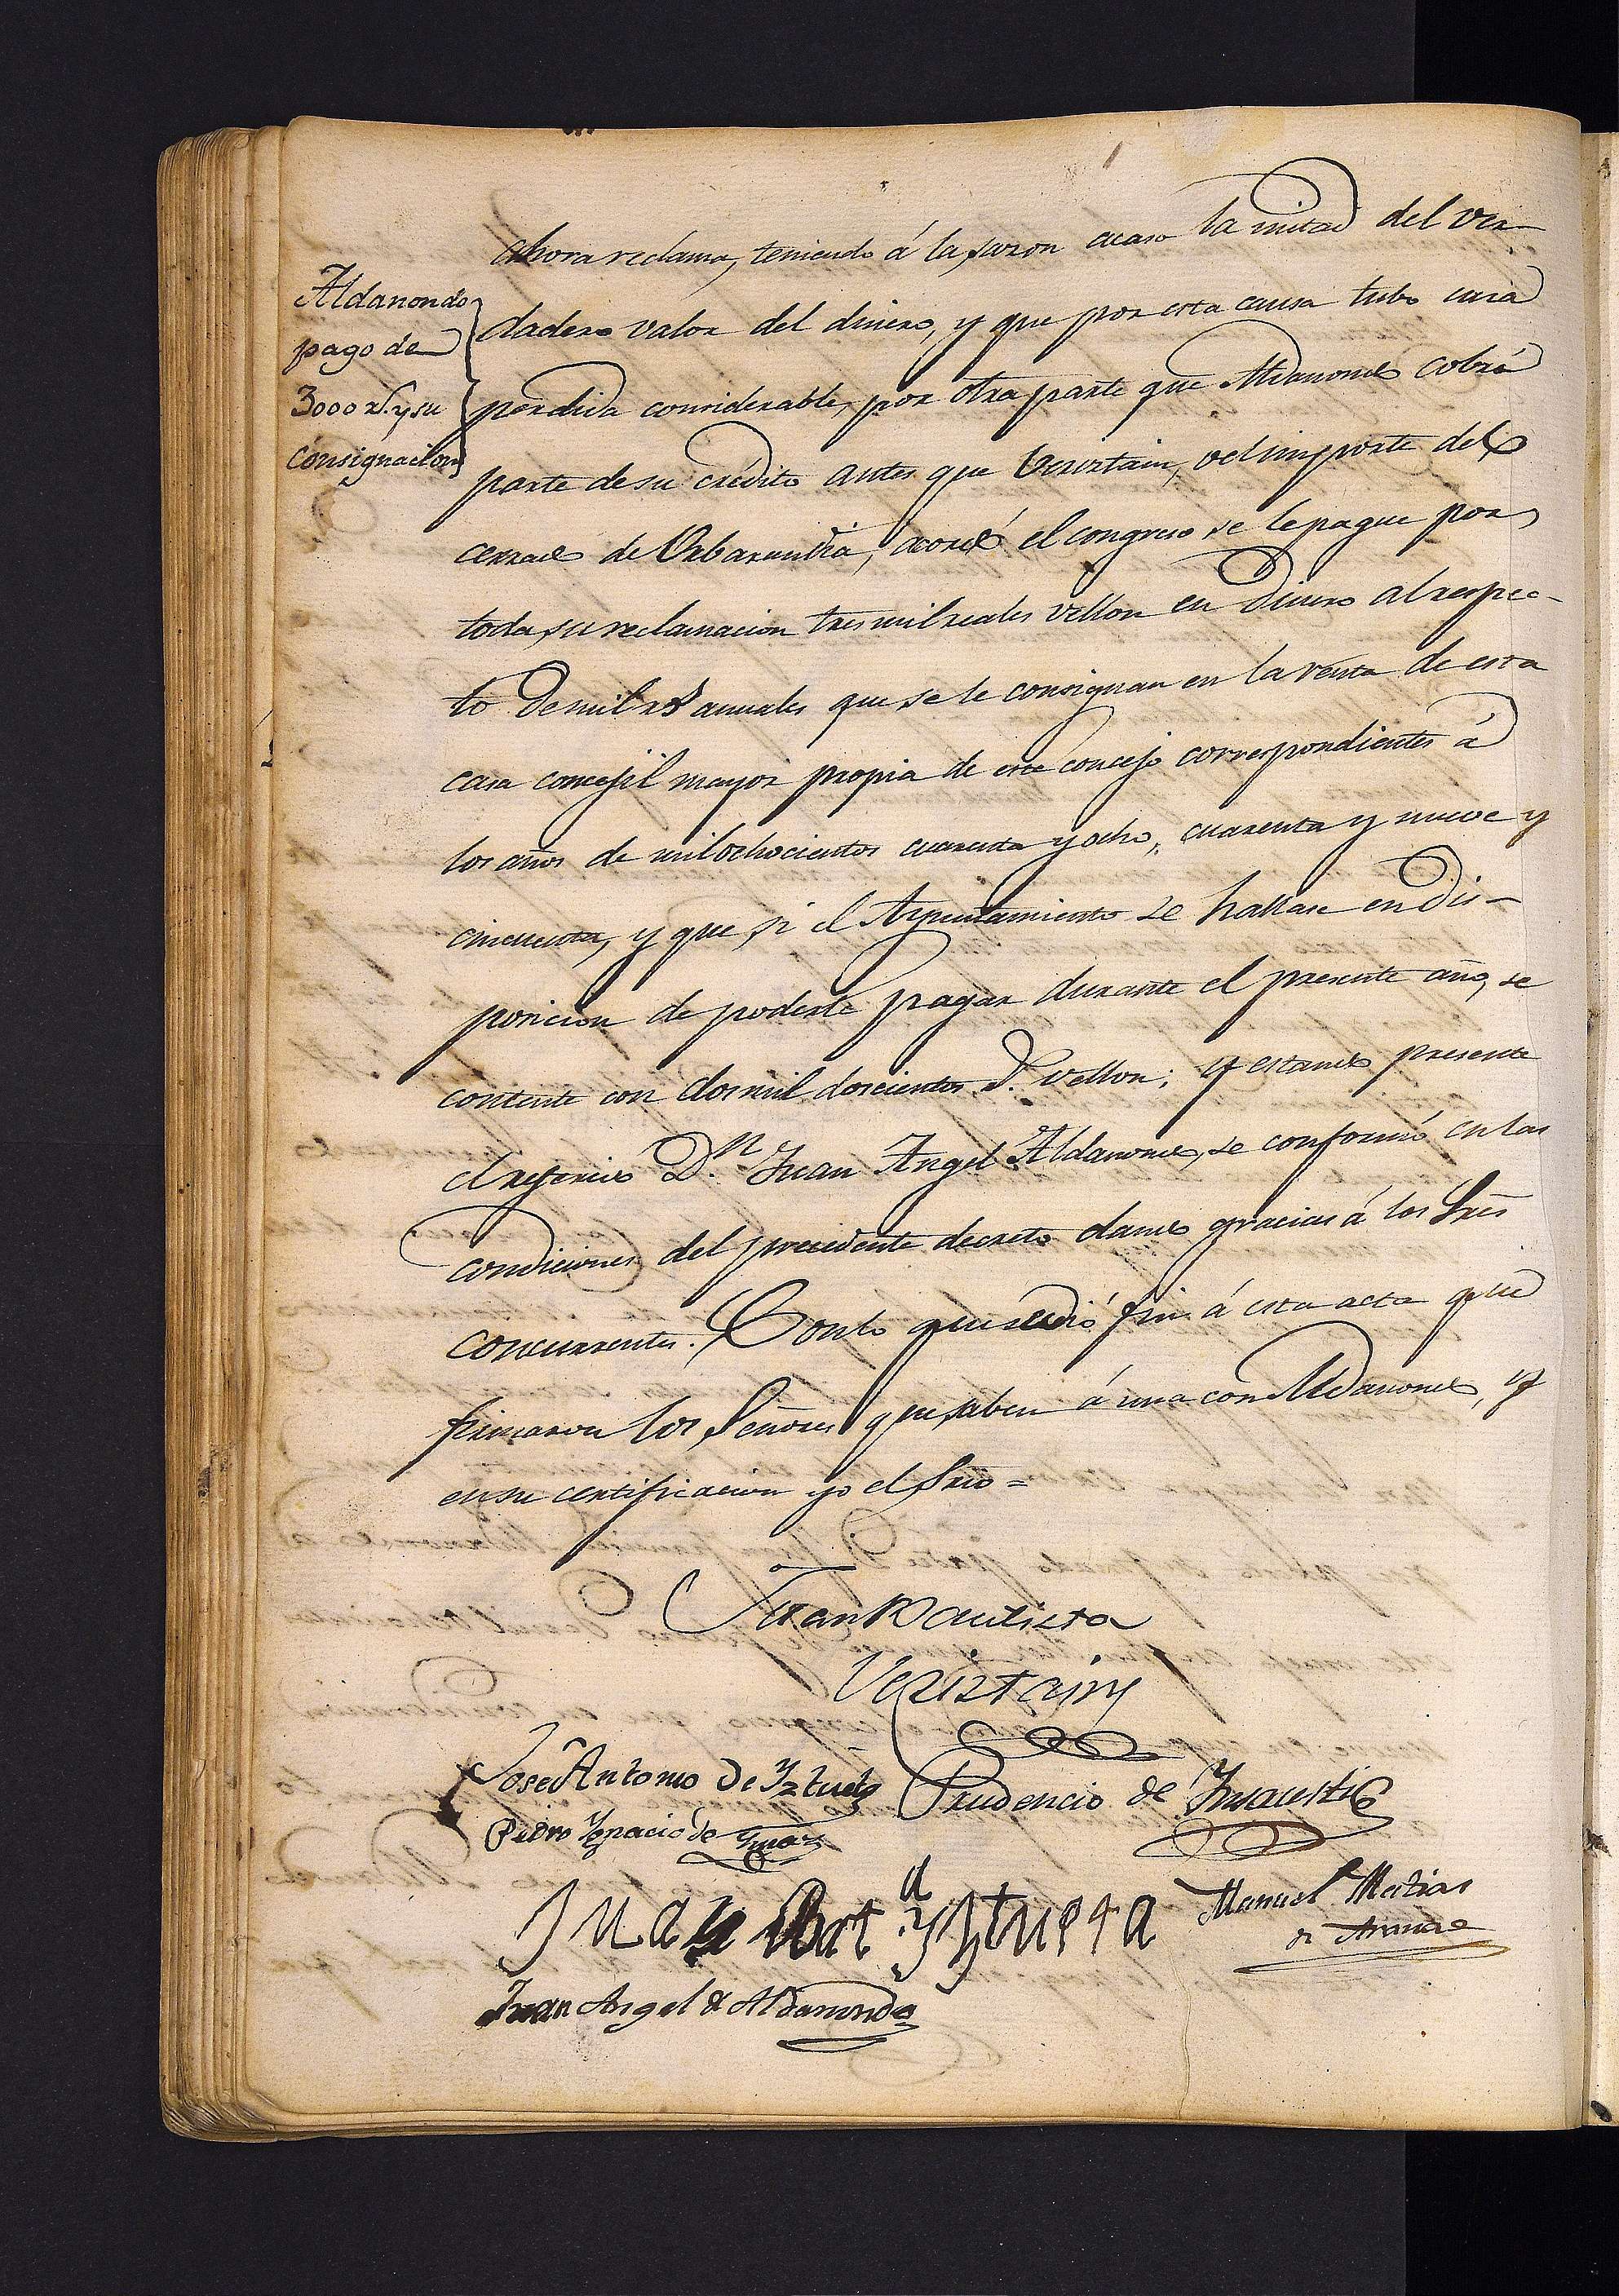 ahora reclama, teniendo á la sazon acaso la mitad del ver-
Aldanondo
pago de
3000 rs. y su
consignacion
dadero valor del dinero, y que por esta causa tubo una
perdida considerable, por otra parte que Aldanondo cobró
parte de su crédito antes que Veriztain, el importe del
cerrado de Urbarandia, acordó el congreso se le pague por
toda su reclamacion tres mil reales vellon en dinero al respec-
to de mil rs anuales que se le consignan en la renta de esta
casa concejil mayor propia de este concejo correspondientes á
los años de mil ochocientos cuarenta y ocho, cuarenta y nueve y
cincuenta, y que si el Ayuntamiento se hallase en dis-
posicion de poderle pagar durante el presente año, se
contente con dos mil doscientos rs. vellon; y estando presente
el referido Dn. Juan Angel Aldanondo, se conformó en las
condiciones del precedente decreto dando gracias á los Sres
concurrentes. Con lo que se dió fin á esta acta que
firmaron los Señores que saben á una con Aldanondo, y
en su certificacion yo el Srio =
Juan Bautista
Veriztain
José Antonio de Yztueta Prudencio de Ynsausti
Pedro Ygnacio de
Juan Bata. Yztueta Manuel Matias
de Arana
Juan Angel de Aldanondo